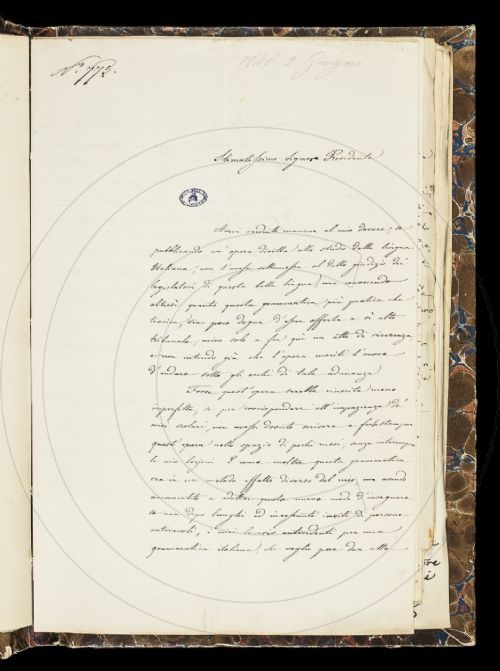 N.° 772.
1846. 2 Giugno
Stimatissimo Signore Presidente
Avrei creduto mancare al mio dovere, se
pubblicando un' opera diretta allo studio della lingua
Italiana, non l'avessi sottomessa al dotto giudizio dei
legislatori di questa bella lingua; ma conoscendo
altresì quanto questa grammatica, più pratica che
teorica, sia poco degna d'esser offerta a sì alto
tribunale, miro solo a far qui un atto di riverenza,
e non intendo già che l'opera meriti l'onore
d'andare sotto gli occhi di tale adunanza.
Forse quest'opera sarebbe riuscita meno
imperfetta, se per corrispondere all'impazienza de'
miei scolari, non avessi dovuto scrivere e far stampare
quest'opera nello spazio di pochi mesi, senza interrompere
le mie lezioni. E come inoltre questa grammatica
era in un metodo affatto diverso del mio, ma avendo
acconsentito a adottar questo nuovo modo d'insegnare
se non dopo lunghi ed incessanti inviti di persone
autorevoli, i miei lavori antecedenti per una
grammatica italiana, che voglio pure dar alla